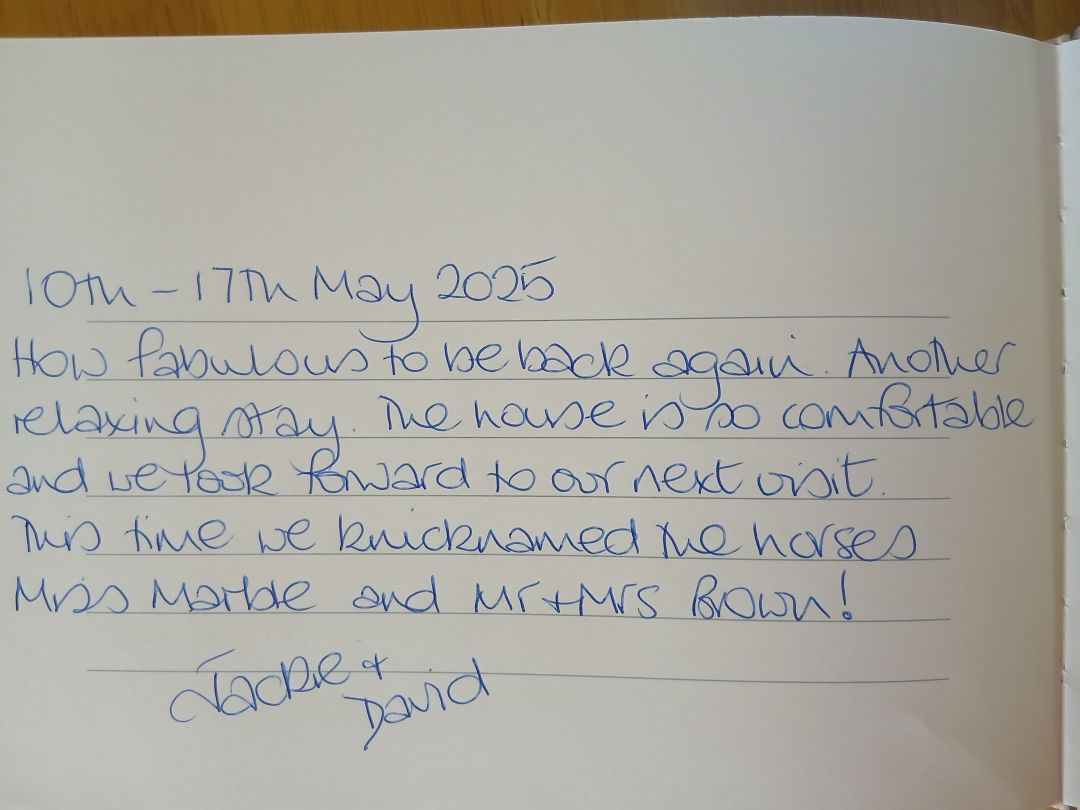 10th - 17th May 2025
How fabulous to be back again. Another
relaxing stay. The house is so comfortable
and we look forward to our next visit.
This time we knicknamed the horses
Miss Marble and Mr + Mrs Brown!
Jackie +
David